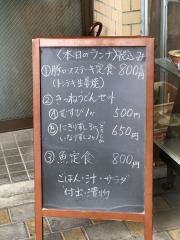 〈本日のランチ〉税込み
①豚ロスステーキ定食 800円
(トンテキ生姜焼)
②きつねうどんセット
Ⓐむすび 500円
Ⓑにぎりすし 650円
いなりすし
③魚定食 800円
ごはん・汁・サラダ
付出・漬物